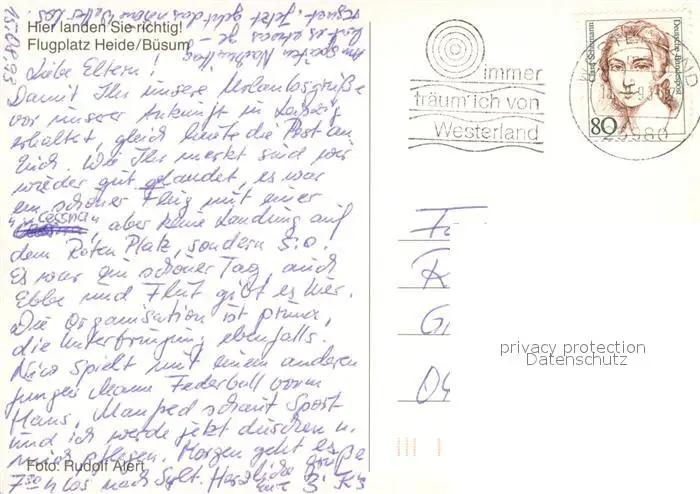 15.08.93
Hier landen Sie richtig!
Flugplatz Heide/Büsum
Liebe Eltern!
Damit Ihr unsere Urlaubsgrüße
vor unserer Ankunft in
erhaltet, gleich heute die Post an
Euch. Wie Ihr merkt sind wir
wieder gut gelandet, es war
ein schöner Flug mit einer
"Cessna", aber keine Landung auf
dem Roten Platz, sondern s.o.
Es war ein schöner Tag, auch
Ebbe und Flut gibt es hier.
Die Organisation ist prima,
die Unterbringung ebenfalls.
Nico spielt mit einem anderen
jungen Mann Federball vorm
Haus, Manfred schaut Sport
und ich werde jetzt duschen u.
mich pflegen. Morgen geht es
7³⁰ h los nach Sylt. Herzliche Grüße
Foto: Rudolf Alert
Am späten Nachmittag
regnet. Jetzt geht das
immer
träum' ich von
Westerland
WESTERLAND
25980
Clara Schumann
Deutsche Bundespost
80
F
K
G
04
privacy protection
Datenschutz